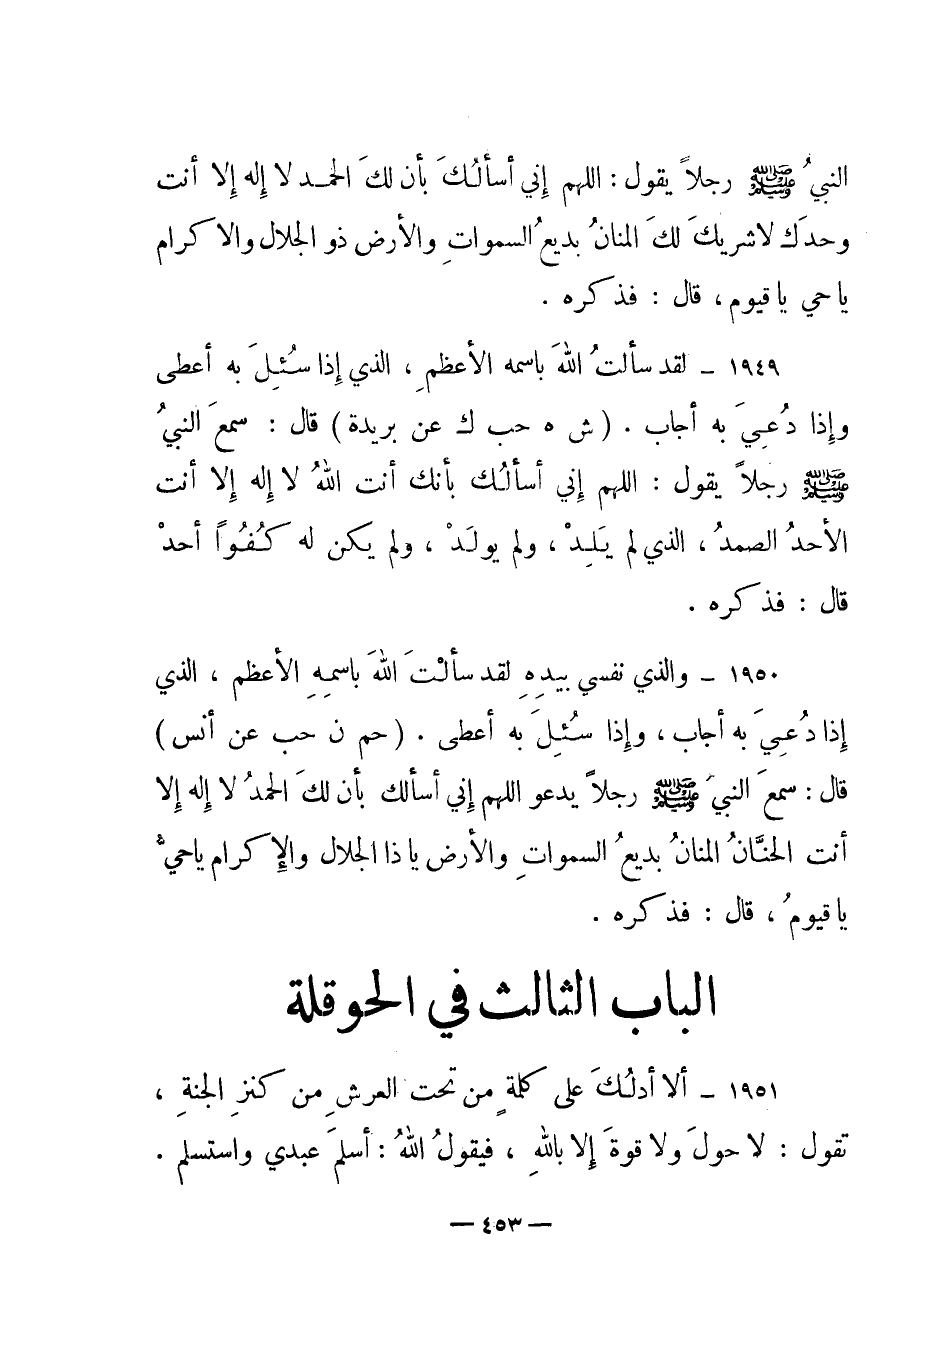 النبيُ ﷺ رجلاً يقول : اللهم إني أسألُكَ بأن لكَ الحمد لا إله إلا أنت
وحدَك لا شريكَ لكَ المنانُ بديعُ السمواتِ والأرض ذو الجلال والاكرام
يا حي يا قيوم ، قال : فذكره .
١٩٤٩ ـ لقد سألتُ اللهَ باسمه الأعظمِ ، الذي إذا سُئِلَ به أعطى
وإذا دُعِيَ به أجاب . ( ش ه حب ك عن بريدة ) قال : سمعَ النبيُ
ﷺ رجلاً يقول : اللهم إني أسألُك بأنك أنت اللهُ لا إله إلا أنت
الأحدُ الصمدُ ، الذي لم يَلِدْ ، ولم يولَدْ ، ولم يكن له كُفُواً أحدْ
قال : فذكره .
١٩٥٠ ـ والذي نفسي بيدِهِ لقد سألْتَ اللهَ باسمِهِ الأعظم ، الذي
إذا دُعِيَ به أجاب ، وإذا سُئِلَ به أعطى . ( حم ن حب عن أنس )
قال : سمعَ النبيُ ﷺ رجلاً يدعو اللهم إني أسألك بأن لكَ الحمدُ لا إله إلا
أنت الحنَّانُ المنانُ بديعُ السمواتِ والأرض يا ذا الجلال والإكرام يا حيُّ
يا قيومُ ، قال : فذكره .
الباب الثالث في الحوقلة
١٩٥١ ـ ألا أدلُكَ على كلمةٍ من تحت العرشِ من كنزِ الجنةِ ،
تقول : لا حولَ ولا قوةَ إلا باللهِ ، فيقولُ اللهُ : أسلمَ عبدي واستسلم .
— ٤٥٣ —